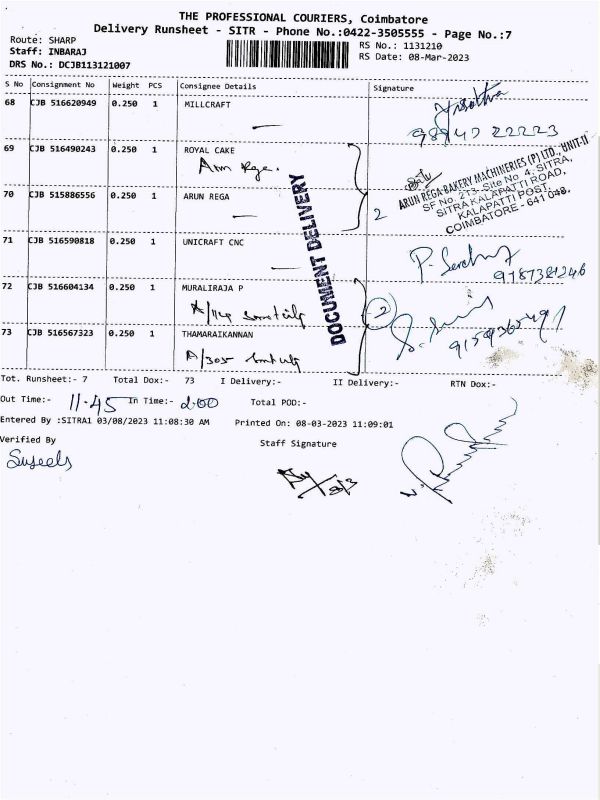 THE PROFESSIONAL COURIERS, Coimbatore
Delivery Runsheet - SITR - Phone No.:0422-3505555 - Page No.:7
Route: SHARP
Staff: INBARAJ
DRS No.: DCJB113121007
RS No.: 1131210
RS Date: 08-Mar-2023
S No Consignment No Weight PCS Consignee Details Signature
68 CJB 516620949 0.250 1 MILLCRAFT
98940 22223
69 CJB 516490243 0.250 1 ROYAL CAKE
Arun Rega.
ARUN REGA-BAKERY MACHINERIES (P) LTD., UNIT-II
SF No. 213, Site No. 4, SITRA,
SITRA KALAPATTI ROAD,
KALAPATTI POST,
COIMBATORE - 641 048.
70 CJB 515886556 0.250 1 ARUN REGA
2
71 CJB 516590818 0.250 1 UNICRAFT CNC
9787381246
DOCUMENT DELIVERY
72 CJB 516604134 0.250 1 MURALIRAJA P
A/114
2
73 CJB 516567323 0.250 1 THAMARAIKANNAN
A/305
Tot. Runsheet:- 7 Total Dox:- 73 I Delivery:- II Delivery:- RTN Dox:-
Out Time:- 11.45 In Time:- 2.00 Total POD:-
Entered By :SITRA1 03/08/2023 11:08:30 AM Printed On: 08-03-2023 11:09:01
Verified By Staff Signature